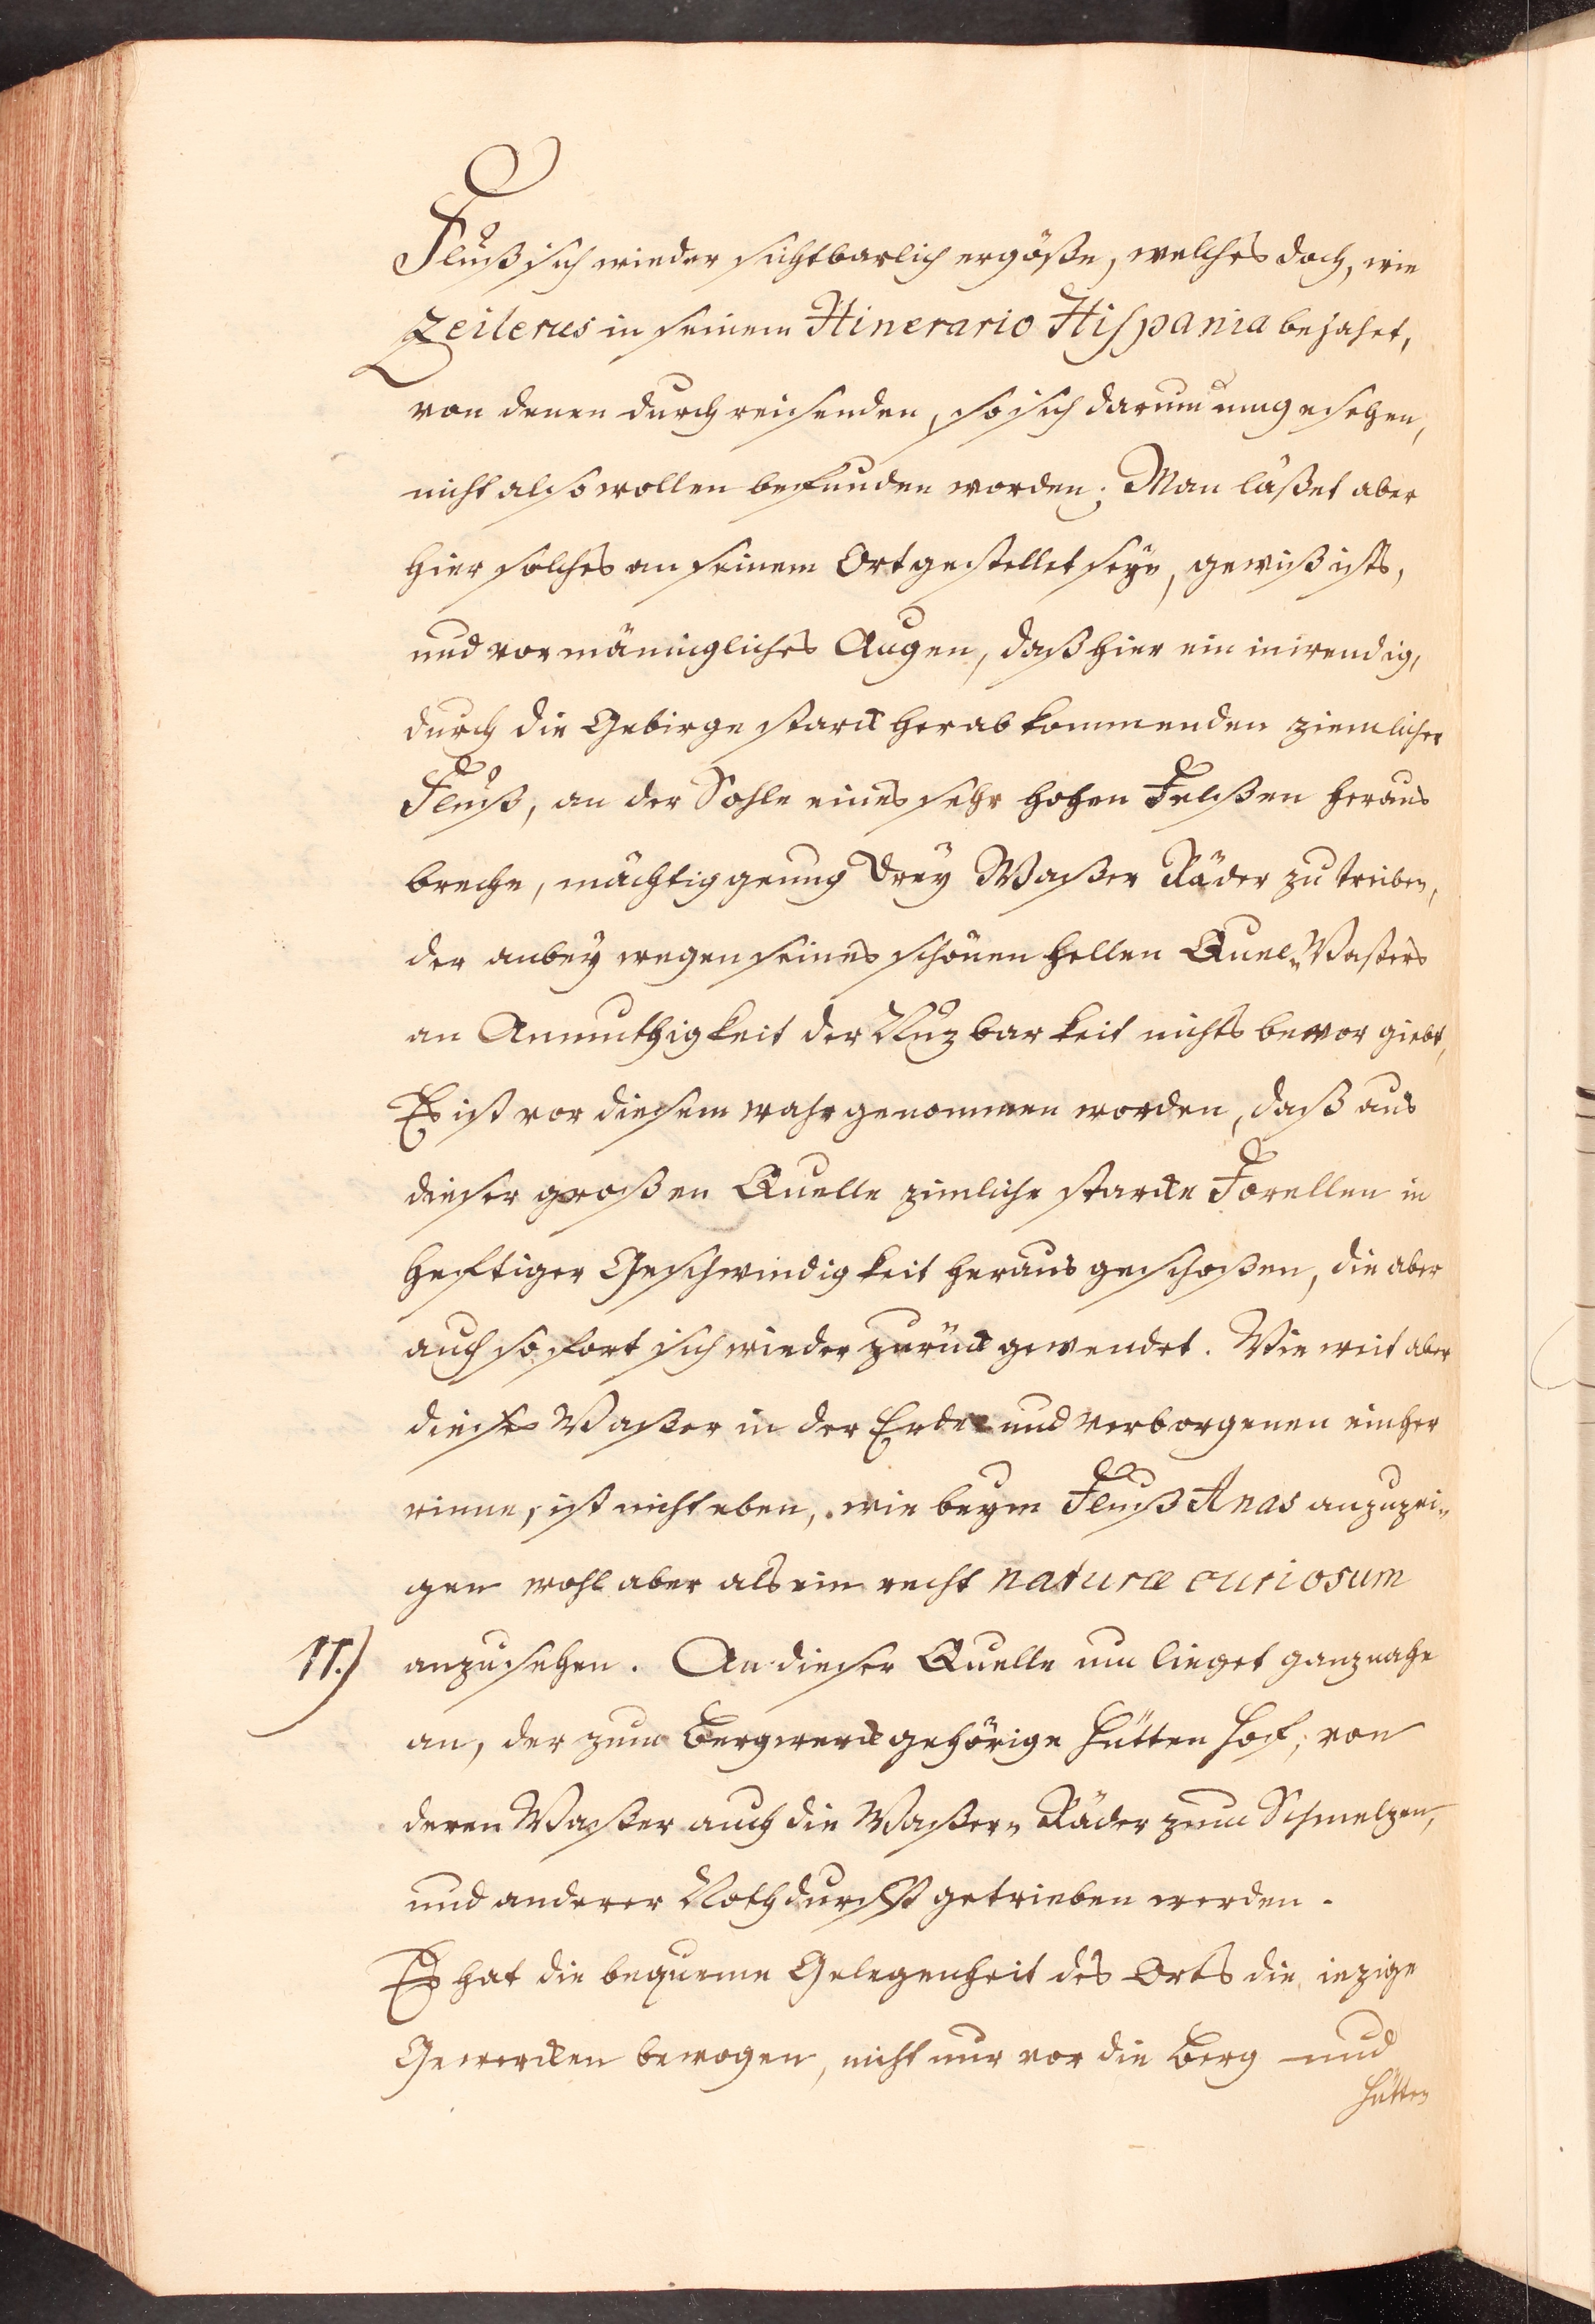 Fluß sich wieder sichtbarlich ergöße, welches doch, wie
Zeilerus in seinem Itinerario Hispania bejahet,
von denen durchreisenden, so sich darum umgesehen,
nicht also wollen befunden worden; Man läßet aber
hier solches an seinem Ort gestellet seyn, gewiß ists,
und vor männigliches Augen, daß hier ein inwendig,
durch die Gebirge starck herab kommenden ziemlicher
Fluß, an der Sohle eines sehr hohen Felßen heraus
breche, mächtig genug Drey Waßer Räder zu treiben,
der anbey wegen seines schönen hellen Quel-Waßers
an Anmuthigkeit der Nuzbarkeit nichts bevor giebt,
Es ist vor diesem wahrgenommen worden, daß aus
dieser großen Quelle zimliche starcke Forellen in
heftiger Geschwindigkeit heraus geschoßen, die aber
auch so fort sich wieder zurück gewendet. Wie weit aber
dieses Waßer in der Erde und verborgenen einher
rinne, ist nicht eben, wie beym Fluß Anas anzuzei-
gen wohl aber als ein recht naturæ curiosum
11.) anzusehen. An dieser Quelle nun lieget ganz nahe
an, der zum Bergwerck gehörige Hütten Hof, von
deren Waßer auch die Waßer-Räder zum Schmelzen,
und anderer Nothdurfft getrieben werden.
Es hat die bequeme Gelegenheit des Orts die iezige
Gewercken bewogen, nicht nur vor die Berg und
Hütten